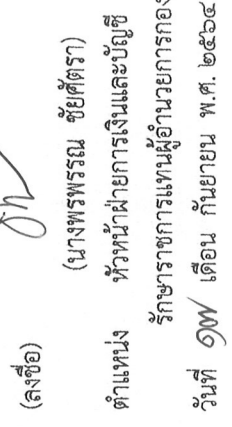 (ลงชื่อ)
(นางพรพรรณ ชัยศัตรา)
ตำแหน่ง หัวหน้าฝ่ายการเงินและบัญชี
รักษาราชการแทนผู้อำนวยการกอง
วันที่ ๑๗ เดือน กันยายน พ.ศ. ๒๕๖๔